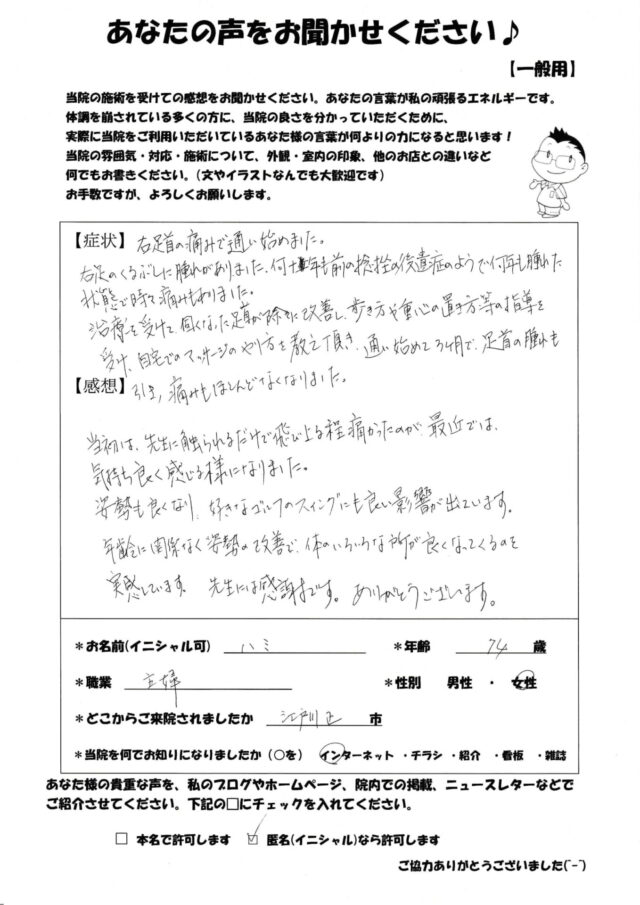 あなたの声をお聞かせください♪
【一般用】
当院の施術を受けての感想をお聞かせください。あなたの言葉が私の頑張るエネルギーです。
体調を崩されている多くの方に、当院の良さを分かっていただくために、
実際に当院をご利用いただいているあなた様の言葉が何よりの力になると思います！
当院の雰囲気・対応・施術について、外観・室内の印象、他のお店との違いなど
何でもお書きください。（文やイラストなんでも大歓迎です）
お手数ですが、よろしくお願いします。
【症状】右足首の痛みで通い始めました。
右足のくるぶしに腫れがありました。何十年も前の捻挫の後遺症のようで何年も腫れた
状態で時々痛みもありました。
治療を受けて固くなった足首が除々に改善し、歩き方や重心の置き方等の指導を
受け、自宅でのマッサージのやり方を教えて頂き、通い始めて3ヶ月で、足首の腫れも
【感想】引き、痛みもほとんどなくなりました。
当初は、先生に触られるだけで飛び上る程痛かったのが、最近では、
気持ち良く感じる様になりました。
姿勢も良くなり、好きなゴルフのスイングにも良い影響が出ています。
年齢に関係なく姿勢の改善で、体のいろいろな所が良くなってくるのを
実感しています。 先生には感謝です。ありがとうございます。
＊お名前(イニシャル可) ハミ ＊年齢 74 歳
＊職業 主婦 ＊性別 男性 ・ 女性
＊どこからご来院されましたか 江戸川区 市
＊当院を何でお知りになりましたか（○を） インターネット ・チラシ ・紹介 ・看板 ・雑誌
あなた様の貴重な声を、私のブログやホームページ、院内での掲載、ニュースレターなどで
ご紹介させてください。下記の□にチェックを入れてください。
□ 本名で許可します ☑ 匿名(イニシャル)なら許可します
ご協力ありがとうございました(^-^)